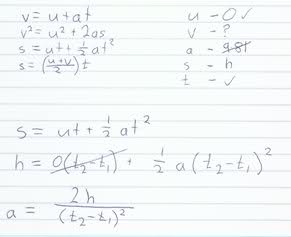 v = u + at
v² = u² + 2as
s = ut + ½ at²
s = (u+v/2) t
u - 0 ✓
v - ?
a - 9.81
s - h
t - ✓
s = ut + ½ at²
h = 0(t₂-t₁) + ½ a (t₂-t₁)²
a = 2h/(t₂-t₁)²